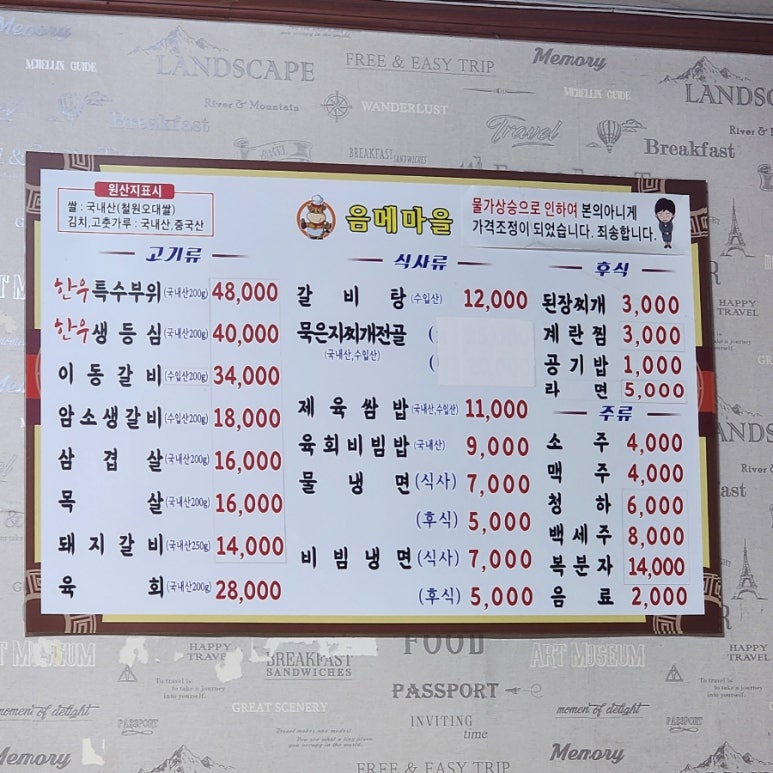 Memory
LANDSCAPE
FREE & EASY TRIP
Memory
River & Mountain
WANDERLUST
LANDSC
Breakfast
Travel
River &
BREAKFAST
SANDWICHES
Breakfast
원산지표시
쌀 : 국내산(철원오대쌀)
김치,고춧가루 : 국내산,중국산
음메마을
물가상승으로 인하여 본의아니게
가격조정이 되었습니다. 죄송합니다.
고기류
한우특수부위(국내산200g) 48,000
한우생등심(국내산200g) 40,000
이동갈비(수입산200g) 34,000
암소생갈비(수입산200g) 18,000
삼겹살(국내산200g) 16,000
목살(국내산200g) 16,000
돼지갈비(국내산250g) 14,000
육회(국내산200g) 28,000
식사류
갈비탕(수입산) 12,000
묵은지찌개전골 (
(국내산,수입산) (
제육쌈밥(국내산,수입산) 11,000
육회비빔밥(국내산) 9,000
물냉면(식사) 7,000
(후식) 5,000
비빔냉면(식사) 7,000
(후식) 5,000
후식
된장찌개 3,000
계란찜 3,000
공기밥 1,000
라면 5,000
주류
소주 4,000
맥주 4,000
청하 6,000
백세주 8,000
복분자 14,000
음료 2,000
HAPPY
TRAVEL
ANDS
HAPPY
TRAVEL
BREAKFAST
SANDWICHES
FOOD
ART MUSEUM
HAPPY
TRAVEL
ART MUSEUM
To travel is
to take a journey
into yourself.
PASSPORT
To travel is
to take a journey
into yourself.
moment of delight
PASSPORT
GREAT SCENERY
INVITING
time
moment of delight
PASSPORT
Memory
FREE & EASY TRIP
Memory